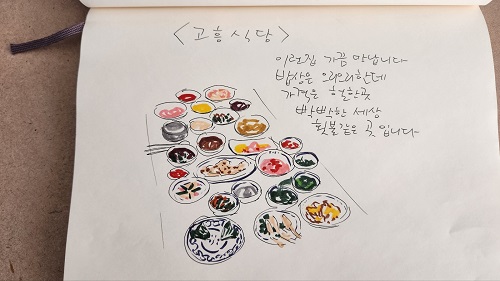 <고흥식당>
이런집 가끔 만납니다
밥상은 으리으리한데
가격은 헐한곳
빡빡한 세상
횃불같은 곳 입니다